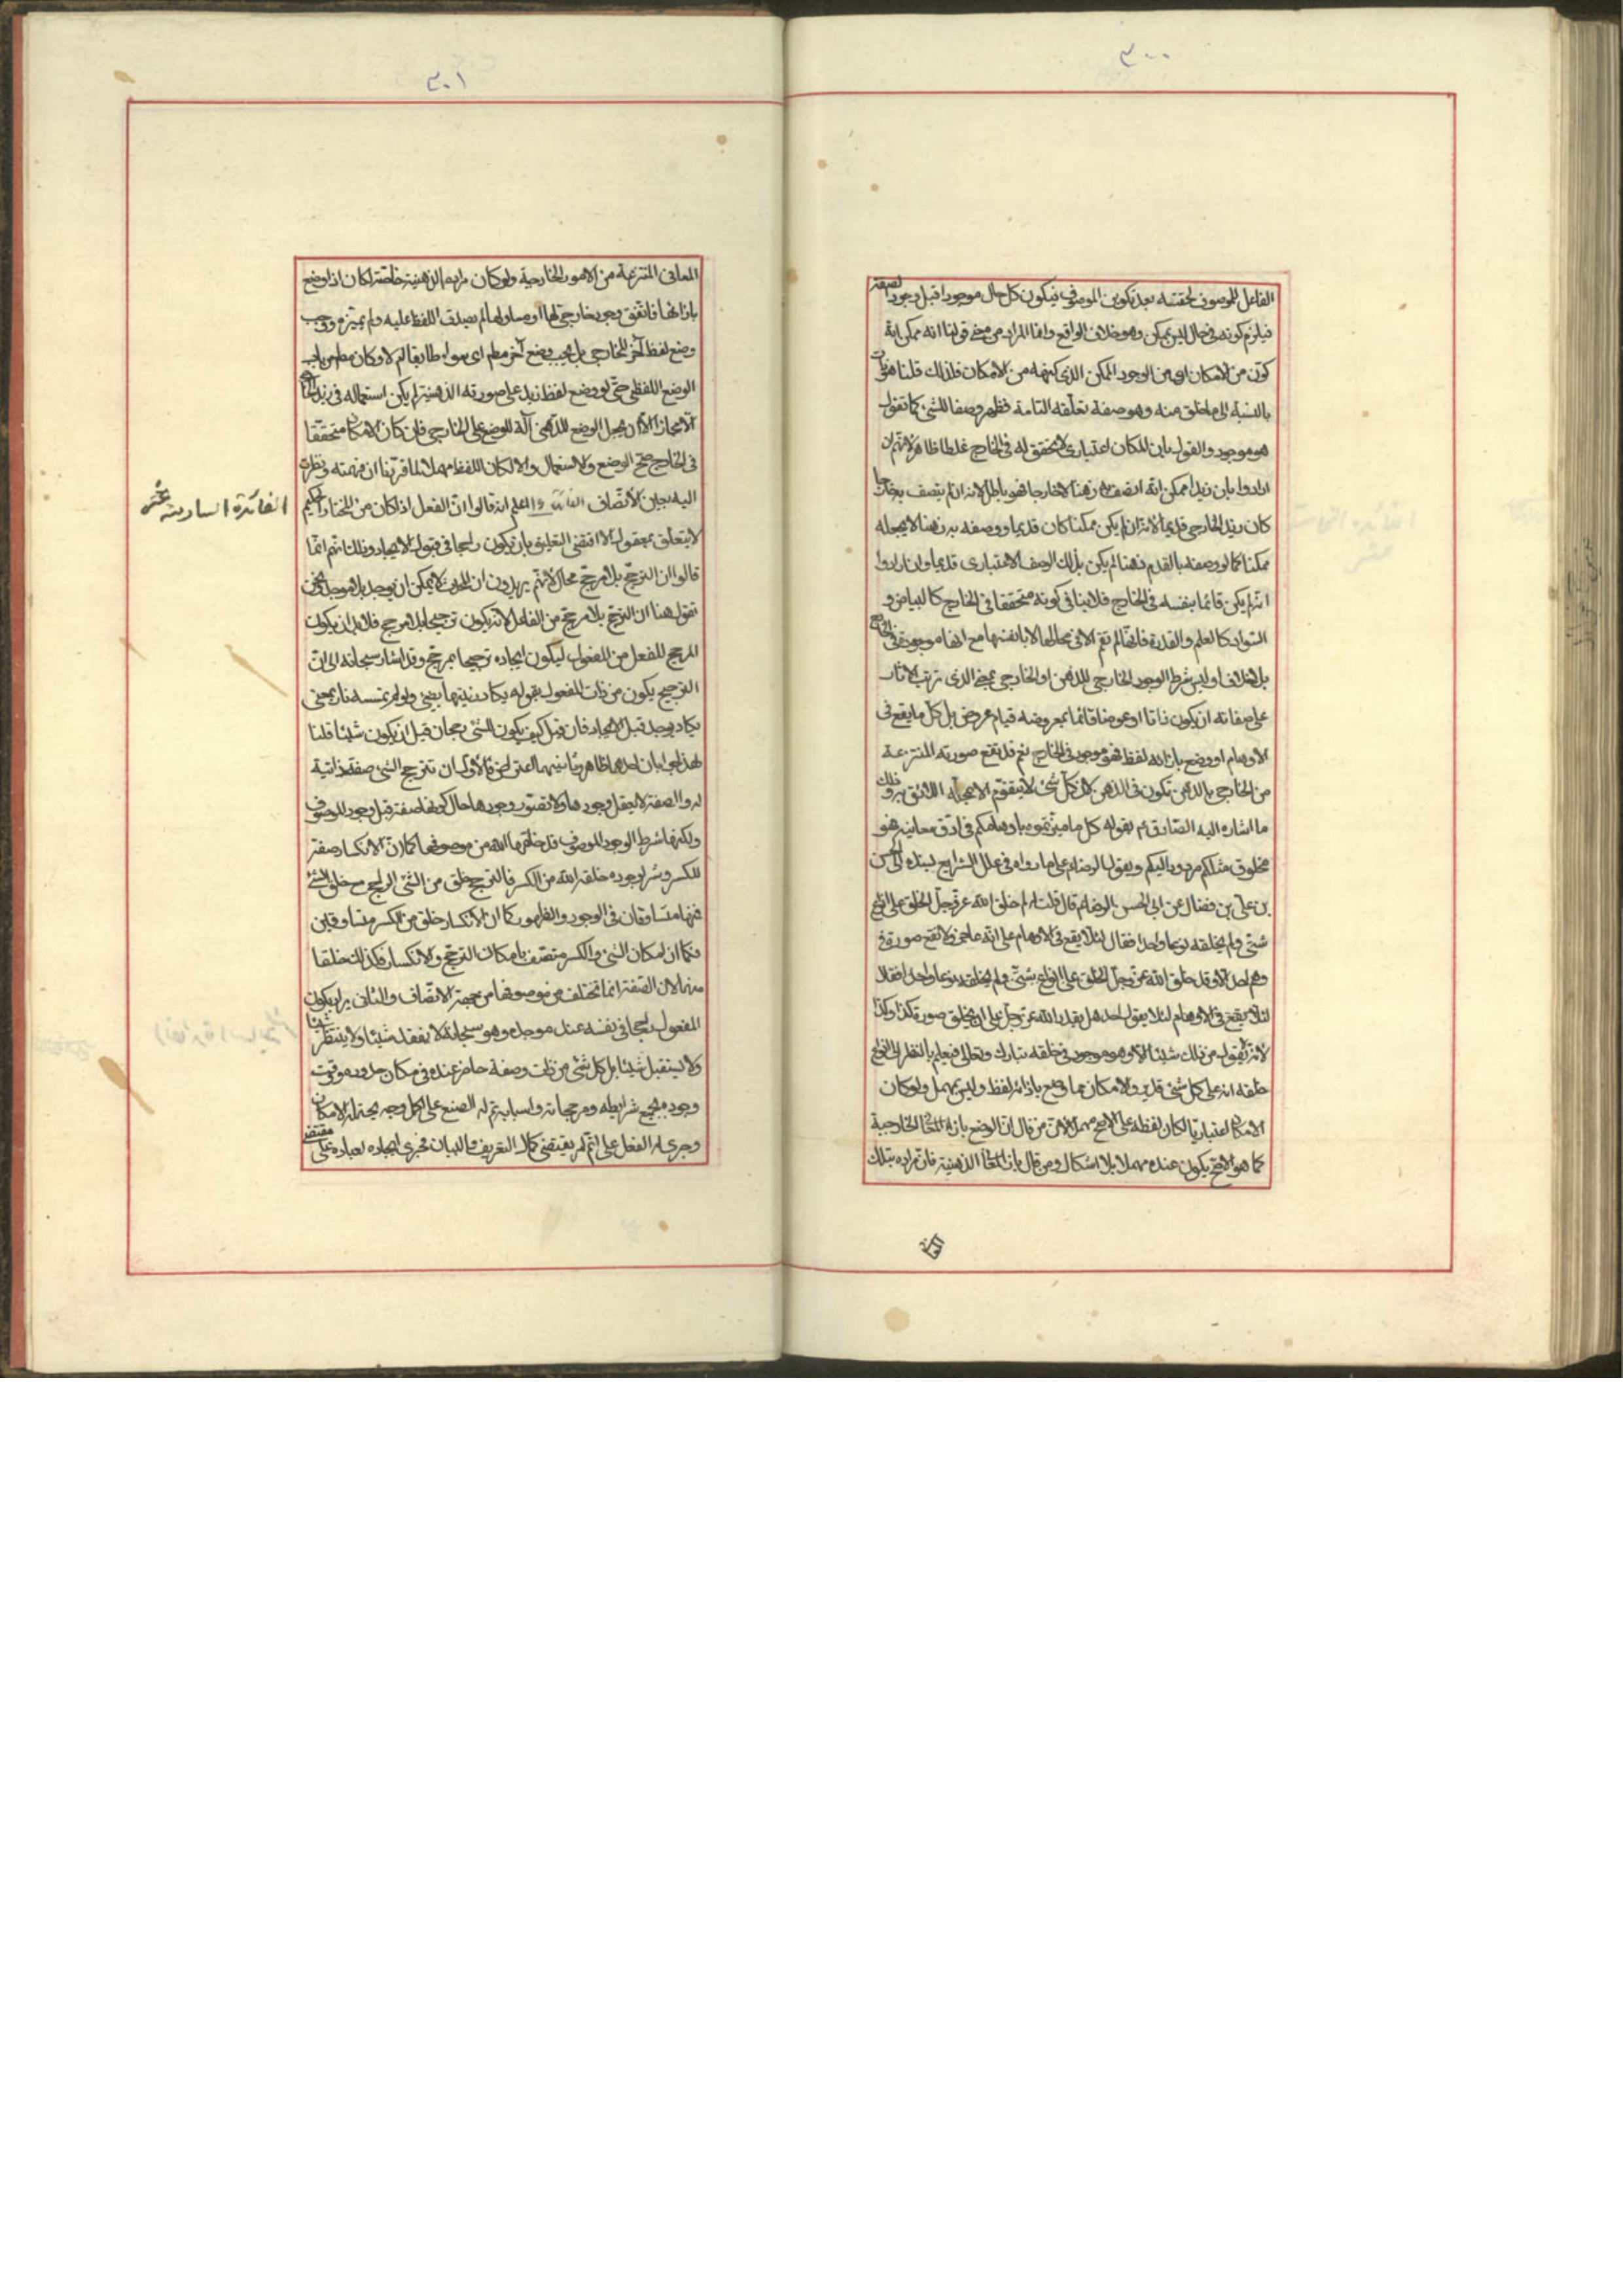 ٣٠٠
الفاعل للموصوف لحقته بعد تكوين الموصوف فيكون كل حال موجودا قبل وجود لصفته
فيلزم كونه في حال ليس بممكن وهو خلاف الواقع وانما المراد من معنى قولنا انه ممكن انه
كون من الامكان اي من الوجود الممكن الذي كنهه من الامكان فلذلك قلنا هو
بالنسبة الى ما خلق منه وهو صفة تعلقه التامة فظهر وصفا للشيء كما تقول
هو موجود والقول بان الامكان اعتباري لا تحقق له في الخارج غلط ظاهر لانهم ان
ارادوا بان زيدا ممكن انه اتصف به ذهنا لا خارجا فهو باطل لانه ان لم يتصف به خارجا
كان زيد الخارجي قديما لانه ان لم يكن ممكنا كان قديما ووصفه به ذهنا لا يجعله
ممكنا كما لو وصفه بالقدم ذهنا لم يكن بذلك الوصف الاعتباري قديما وان ارادوا
انه لم يكن قائما بنفسه في الخارج فلا ينافي كونه متحققا في الخارج كالبياض و
السواد كالعلم والقدرة فانها لم تقم الا في محالها لا بانفسها مع انها موجودة في الخارج
بلا خلاف اوليس شرط الوجود الخارجي للذهن او الخارجي بمعنى الذي ترتب الاثار
على صفاته ان يكون ذاتا او عرضا قائما بمعروضه قيام عروض بل كل ما يقع في
الاوهام او وضع بازائه لفظ فهو موجود في الخارج نعم قد تقع صورته المنتزعة
من الخارجي بالذهن تكون في الذهن لان كل شئ لا يتقوم الا بمحله اللائق به وذلك
ما اشار اليه الصادق ع بقوله كل ما ميزتموه باوهامكم في ادق معانيه فهو
مخلوق مثلكم مردود اليكم وبقول الرضا ع على ما رواه في علل الشرايع بسنده الى الحسن
بن علي بن فضال عن ابي الحسن الرضا ع قال قلت له لم خلق الله عز وجل الخلق على انواع
شتى ولم يخلقه نوعا واحدا فقال لئلا يقع في الاوهام على انه عاجز ولا تقع صورة في
وهم احد الا وقد خلق الله عز وجل الخلق على انواع شتى ولم يخلقه نوعا واحدا فقال
لئلا يقع في الاوهام لئلا يقول احد هل يقدر الله عز وجل على ان يخلق صورة كذا وكذا
لانه لا يقول من ذلك شيئا الا وهو موجود في خلقه تبارك وتعالى فيعلم بالنظر الى انواع
خلقه انه على كل شئ قدير والامكان مما وضع بازائه لفظ وليس بمهمل ولو كان
الامكان اعتباريا لكان لفظه على الاصح مهملا لان من قال ان الوضع بازاء المعاني الخارجية
كما هو الاصح يكون عنده مهملا بلا اشكال ومن قال بازاء المعاني الذهنية فان مراده بتلك
٣٠١
المعاني المنتزعة من الامور الخارجية ولو كان مرادهم الذهنية خاصة لكان اذا وضع
بازائها فاتفق وجود خارجي لها او مساو لها لم يصدق اللفظ عليه ولم يميزه ووجب
وضع لفظ آخر للخارجي بل يجب وضع آخر مطم اي سواء طابقا لم لا وكان مطم من باب
الوضع اللفظي حتى لو وضع لفظ زيد على صورته الذهنية لم يكن استعماله في زيد الخارجي
الا مجازا الا ان يجعل الوضع للذهني آلة للوضع على الخارجي فان كان الامكان متحققا
في الخارج صح الوضع والاستعمال والا لكان اللفظ مهملا لما قررنا ان فهمته ونظرت
اليه بعين الانصاف الفائدة اعلم انه قالوا ان الفعل اذا كان من المختار الحكيم
الفائدة السادسة عشر
لا يتعلق بمفعول الا اقتضى التعليق بان يكون راجحا في قبول الايجاد وذلك انهم انما
قالوا ان الترجيح بلا مرجح محال لانهم يريدون ان الحادث لا يمكن ان يوجد بلا موجد ونحن
نقول هنا ان الترجيح بلا مرجح من الفاعل لانه يكون ترجيحا بلا مرجح فلا بد ان يكون
المرجح للفعل من المفعول ليكون ايجاده ترجيحا بمرجح وقد اشار سبحانه الى ان
الترجيح يكون من ذات المفعول بقوله يكاد زيتها يضيء ولو لم تمسسه نار يعني
يكاد يوجد قبل الايجاد فان قيل كيف يكون للشئ رجحان قبل ان يكون شيئا قلنا
لهذا جوابان احدهما ظاهر وثانيهما اعتراض فالاول ان ترجح الشئ صفة ذاتية
له والصفة لا يعقل وجودها ولا تتصور وجودها حال كونها صفة قبل وجود الموصوف
ولكنها شرط لوجود الموصوف قد خلقها الله من موصوفها كما ان الانكسار صفة
للكسر وشرط لوجوده خلقه الله من الكسر فالترجح خلق من الشئ الراجح مع خلق الشئ
فهما متساوقان في الوجود والظهور كما ان الانكسار خلق من الكسر متساوقين
فكما ان امكان الشئ والكسر متصف بامكان الترجح والانكسار فكذلك خلقا
منهما لان الصفة انما تختلف من موصوفها من جهة الاتصاف والثاني يراد بكون
المفعول راجحا في نفسه عند موجده وهو سبحانه لا يفقد شيئا ولا ينتظر شيئا
ولا يستقبل شيئا بل كل شئ من ذات وصفة حاضر عنده في مكان حدوده ووقت
وجوده بجميع شرايطه ومرجحاته واسبابه ثم له الصنع على اكمل وجه يحتمله الامكان
وجرى له الفعل على اتم امر يقتضي كمال التعريف والبيان فجرى ايجاده لعباده على مقتضى